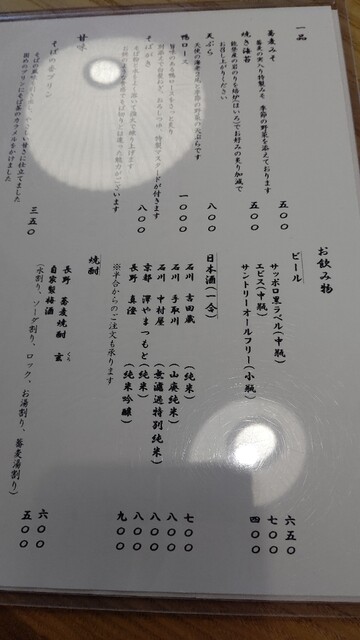 一品
蕎麦みそ 五〇〇
蕎麦の実入り特製みそ、季節の野菜を添えております
焼き海苔 五〇〇
お召し上がりください
天ぷら 八〇〇
鴨ロース 一〇〇〇
そばがき 八〇〇
甘味
そばの茶プリン 三五〇
固めのプリンにそば茶のカラメルをかけました
お飲み物
ビール
サッポロ黒ラベル（中瓶） 六五〇
エビス（中瓶） 七〇〇
サントリーオールフリー（小瓶） 四〇〇
日本酒（一合）
石川 吉田蔵 （純米） 七〇〇
石川 手取川 （山廃純米） 八〇〇
石川 中村屋 （無濾過特別純米） 八〇〇
京都 澤やまつもと （純米） 八〇〇
長野 真澄 （純米吟醸） 九〇〇
※半合からのご注文も承ります
焼酎
長野 蕎麦焼酎 玄 六〇〇
自家製梅酒 五〇〇
（水割り、ソーダ割り、ロック、お湯割り、蕎麦湯割り）